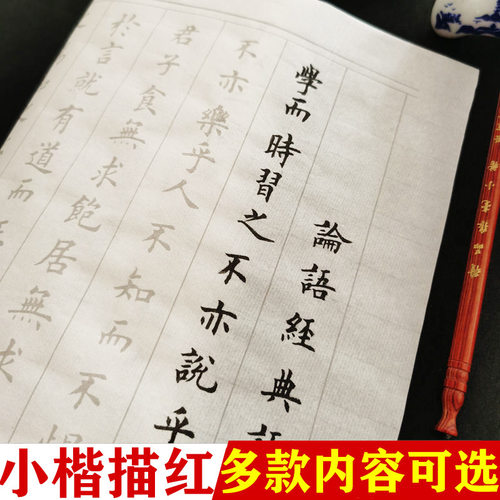 論語經典
學而時習之不亦說乎
不亦樂乎人不知而不
君子食無求飽居無求
於言就有道而
小楷描红
多款内容可选